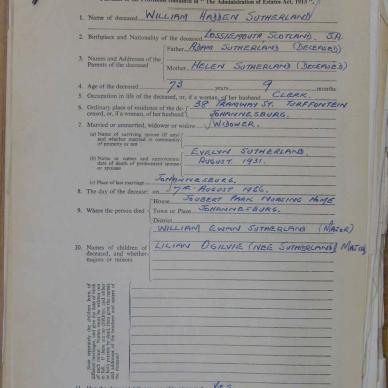 Pursuant to the Provisions contained in "The Administration of Estates Act, 1913".
1. Name of deceased WILLIAM HADDEN SUTHERLAND
2. Birthplace and Nationality of the deceased LOSSIEMOUTH SCOTLAND. S.A.
3. Names and Addresses of the Parents of the deceased
Father, ADAM SUTHERLAND (DECEASED)
Mother, HELEN SUTHERLAND (DECEASED)
4. Age of the deceased 73 years 9 months
5. Occupation in life of the deceased, or, if a woman, of her husband CLERK.
6. Ordinary place of residence of the deceased, or, if a woman, of her husband
38 TRAMWAY ST. TURFFONTEIN
JOHANNESBURG.
7. Married or unmarried, widower or widow WIDOWER.
(a) Name of surviving spouse (if any) and whether married in community of property or not
(b) Name or names and approximate date of death of predeceased spouse or spouses
EVELYN SUTHERLAND
AUGUST 1931.
(c) Place of last marriage JOHANNESBURG.
8. The day of the decease: on 7TH AUGUST 1956.
9. Where the person died
House JOUBERT PARK NURSING HOME
Town or Place JOHANNESBURG.
District
10. Names of children of deceased, and whether majors or minors
WILLIAM EWAN SUTHERLAND (MAJOR)
LILIAN OGILVIE (NEE SUTHERLAND) MAJOR